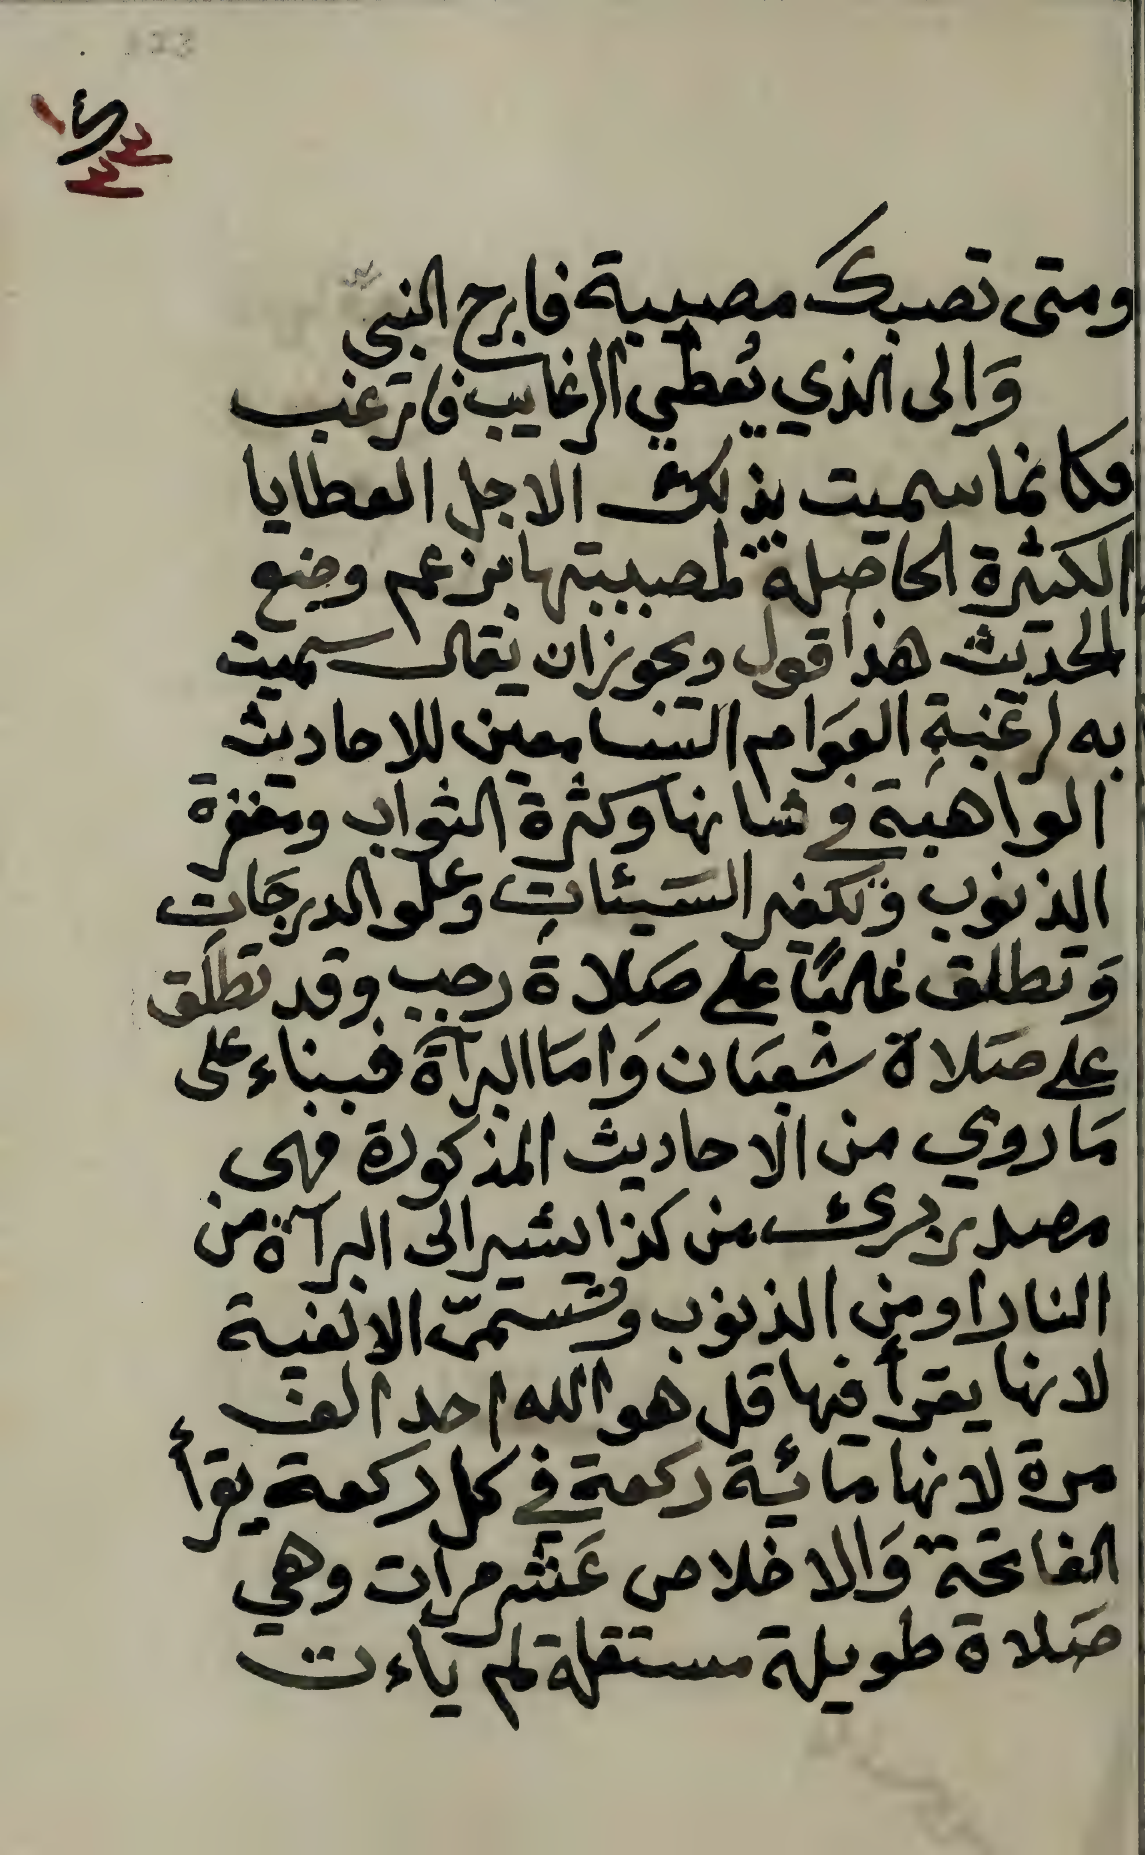 ومتى تصبك مصيبة فارج النبي
وَالى الذي يُعطي الرغايب فارغب
فكانما سميت بذلك الاجل العطايا
الكثيرة الحاصلة لمصيبتها بزعم وضع
الحديث هذا قول ويجوز ان يقال سميت
به لرغبةِ العَوَام التسامعين للاحاديث
الواهية في شانها وكثرة الثواب ومغفرة
الذنوب وتكفير السَيئات وعُلو الدرجَات
وَتطلق غالبًا على صَلاة رجب وقد تطلَق
على صَلاة شعبَان وَامَا البرآة فبناء على
مَا روي من الاحاديث المذكورة فهى
مصدر برئ من كذا يشير الى البرآة من
النار او من الذنوب وتسمّى الالفية
لانها يقرأ فيها قل هو الله احد الف
مرة لانها مَائة ركعة في كل ركعة يقرأ
الفاتحة وَالاخلاص عَشر مرات وهي
صَلاة طويلة مستقلة لم ياءت